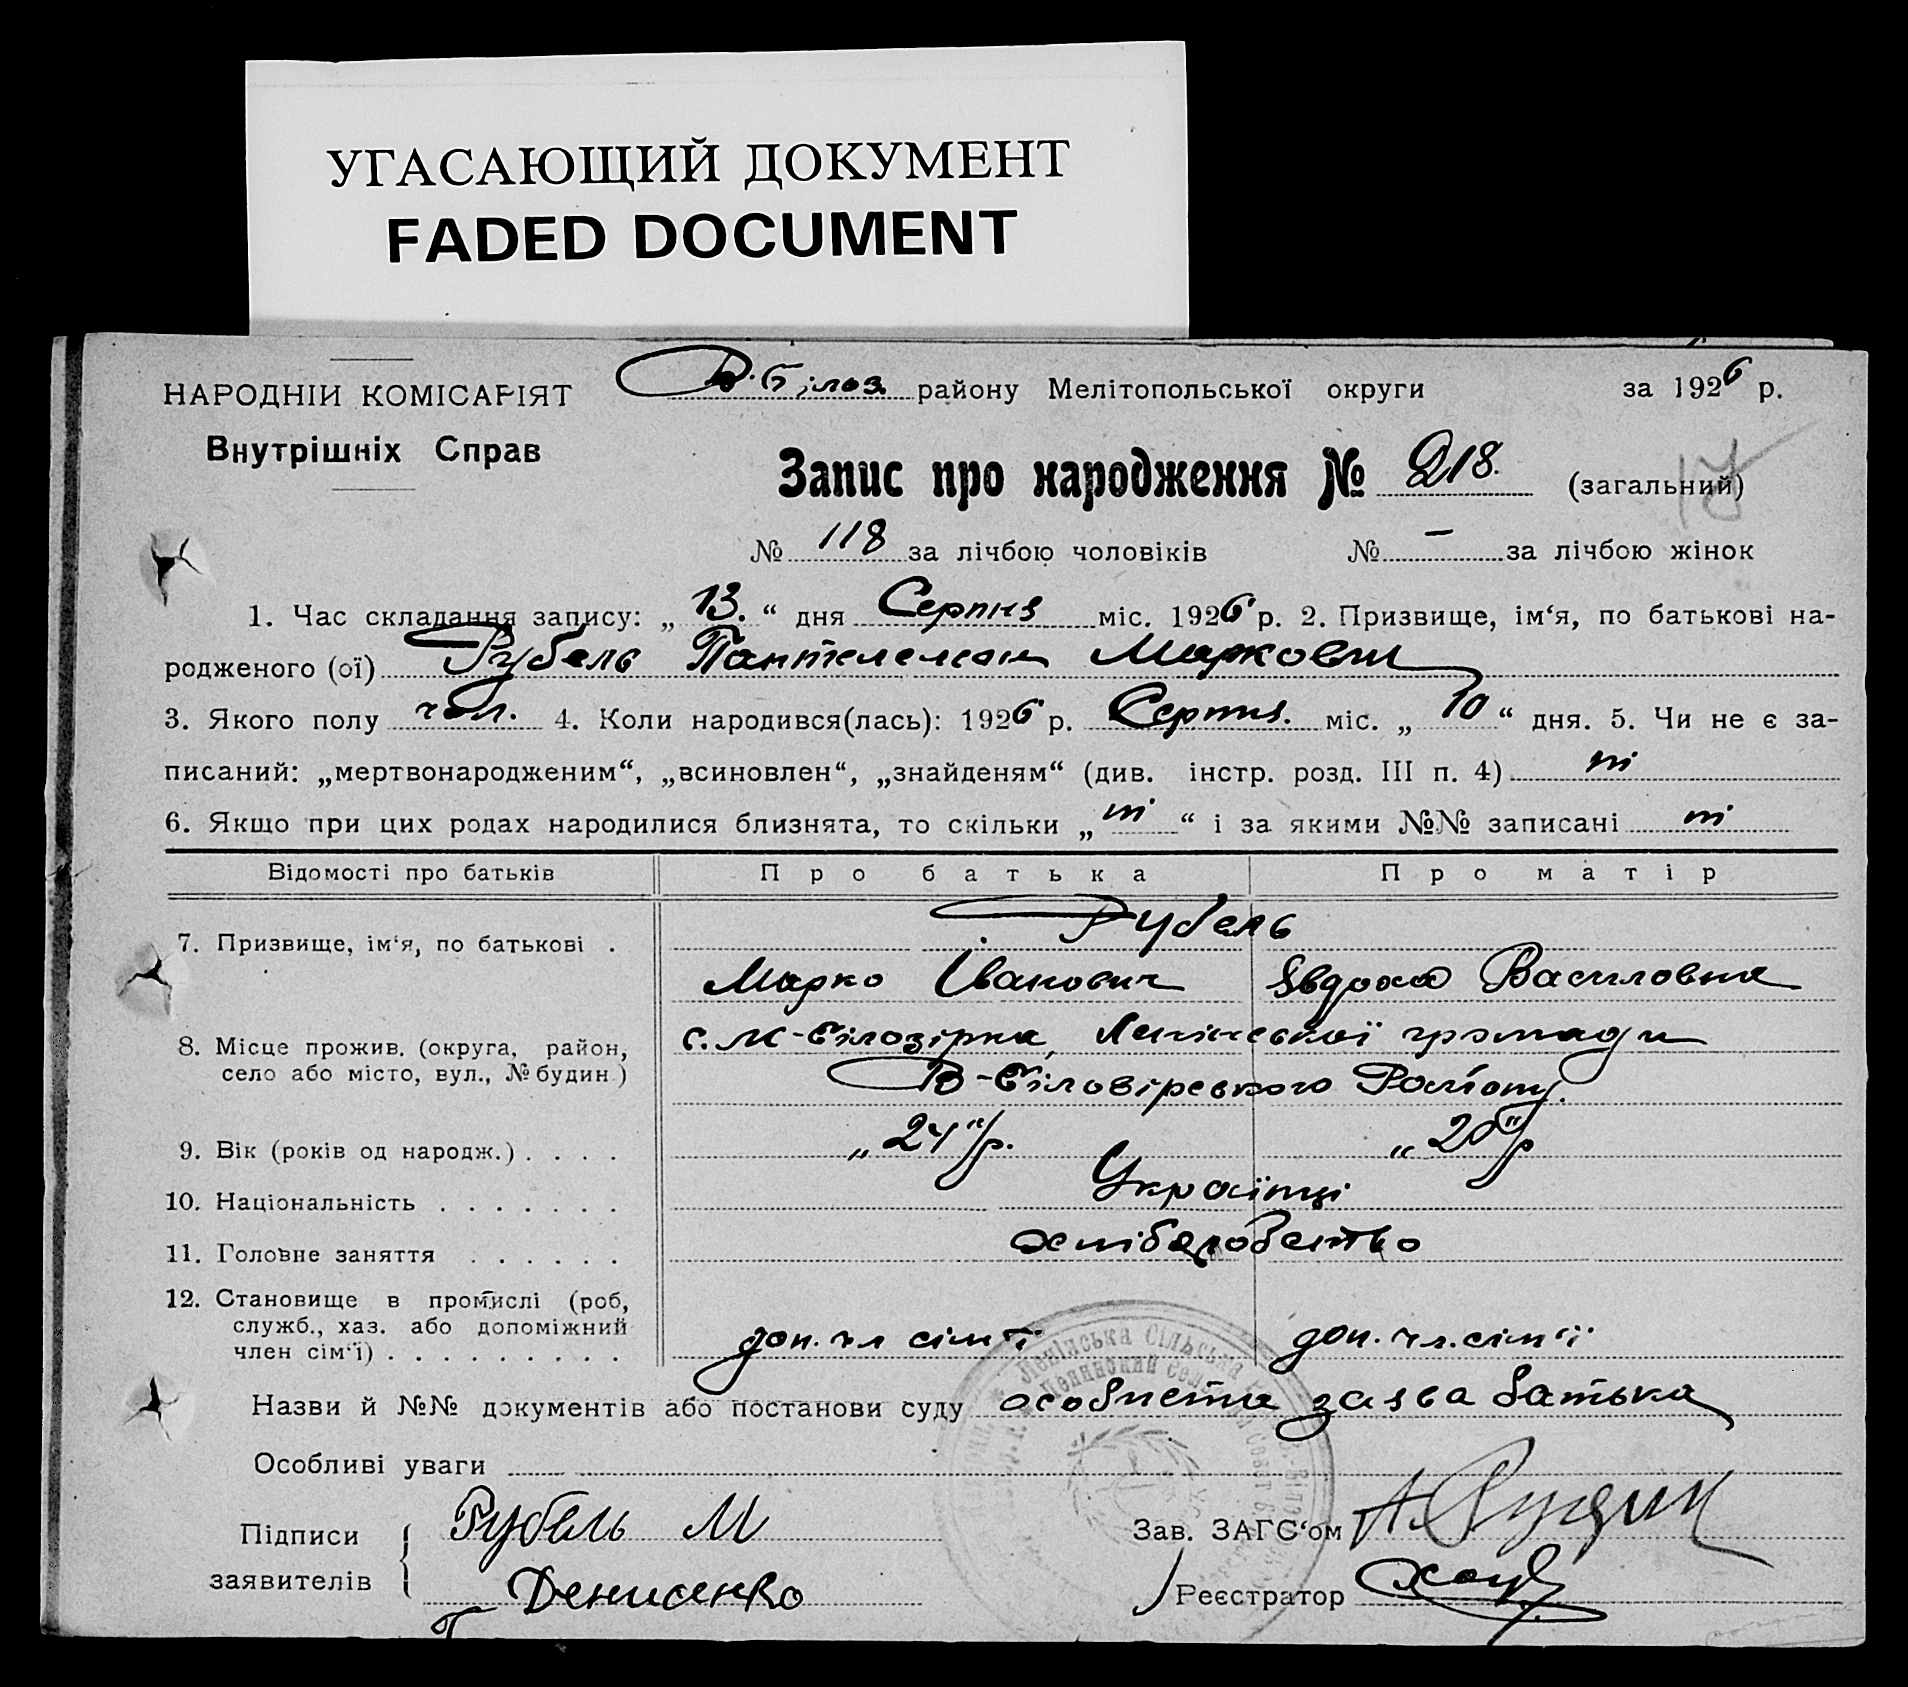 УГАСАЮЩИЙ ДОКУМЕНТ
FADED DOCUMENT
НАРОДНІЙ КОМІСАРІЯТ
Внутрішніх Справ
В-Білоз. району Мелітопольської округи за 1926 р.
Запис про народження № 218. (загальний)
17
№ 118 за лічбою чоловіків № – за лічбою жінок
1. Час складання запису: „ 13. “ дня Серпня міс. 1926 р. 2. Призвище, ім‘я, по батькові на-
родженого (ої) Рубель Пантелемон Маркович
3. Якого полу чол. 4. Коли народився(лась): 1926 р. Серпня. міс. „ 10 “ дня. 5. Чи не є за-
писаний: „мертвонародженим“, „всиновлен“, „знайденям“ (див. інстр. розд. III п. 4) ні
6. Якщо при цих родах народилися близнята, то скільки „ ні “ і за якими №№ записані ні
Відомості про батьків Про батька Про матір
7. Призвище, ім‘я, по батькові . Рубель
Марко Іванович Явдоха Василовна
8. Місце прожив. (округа, район, с. М-Білозірка, Ленінської громади
село або місто, вул., № будин.) В-Білозірського Району.
9. Вік (років од народж.) . . . . „24“ р. „20“ р
10. Національність . . . . . . . Українці
11. Головне заняття . . . . . . хліборобство
12. Становище в промислі (роб,
служб., хаз. або допоміжний
член сім‘ї) . . . . . . . . . . доп. чл сім‘ї доп. чл. сім‘ї
Назви й №№ документів або постанови суду особиста заява батька
Особливі уваги
Підписи Рубель М Зав. ЗАГС‘ом
заявителів Денисенко Реєстратор
Ленінська Сільська